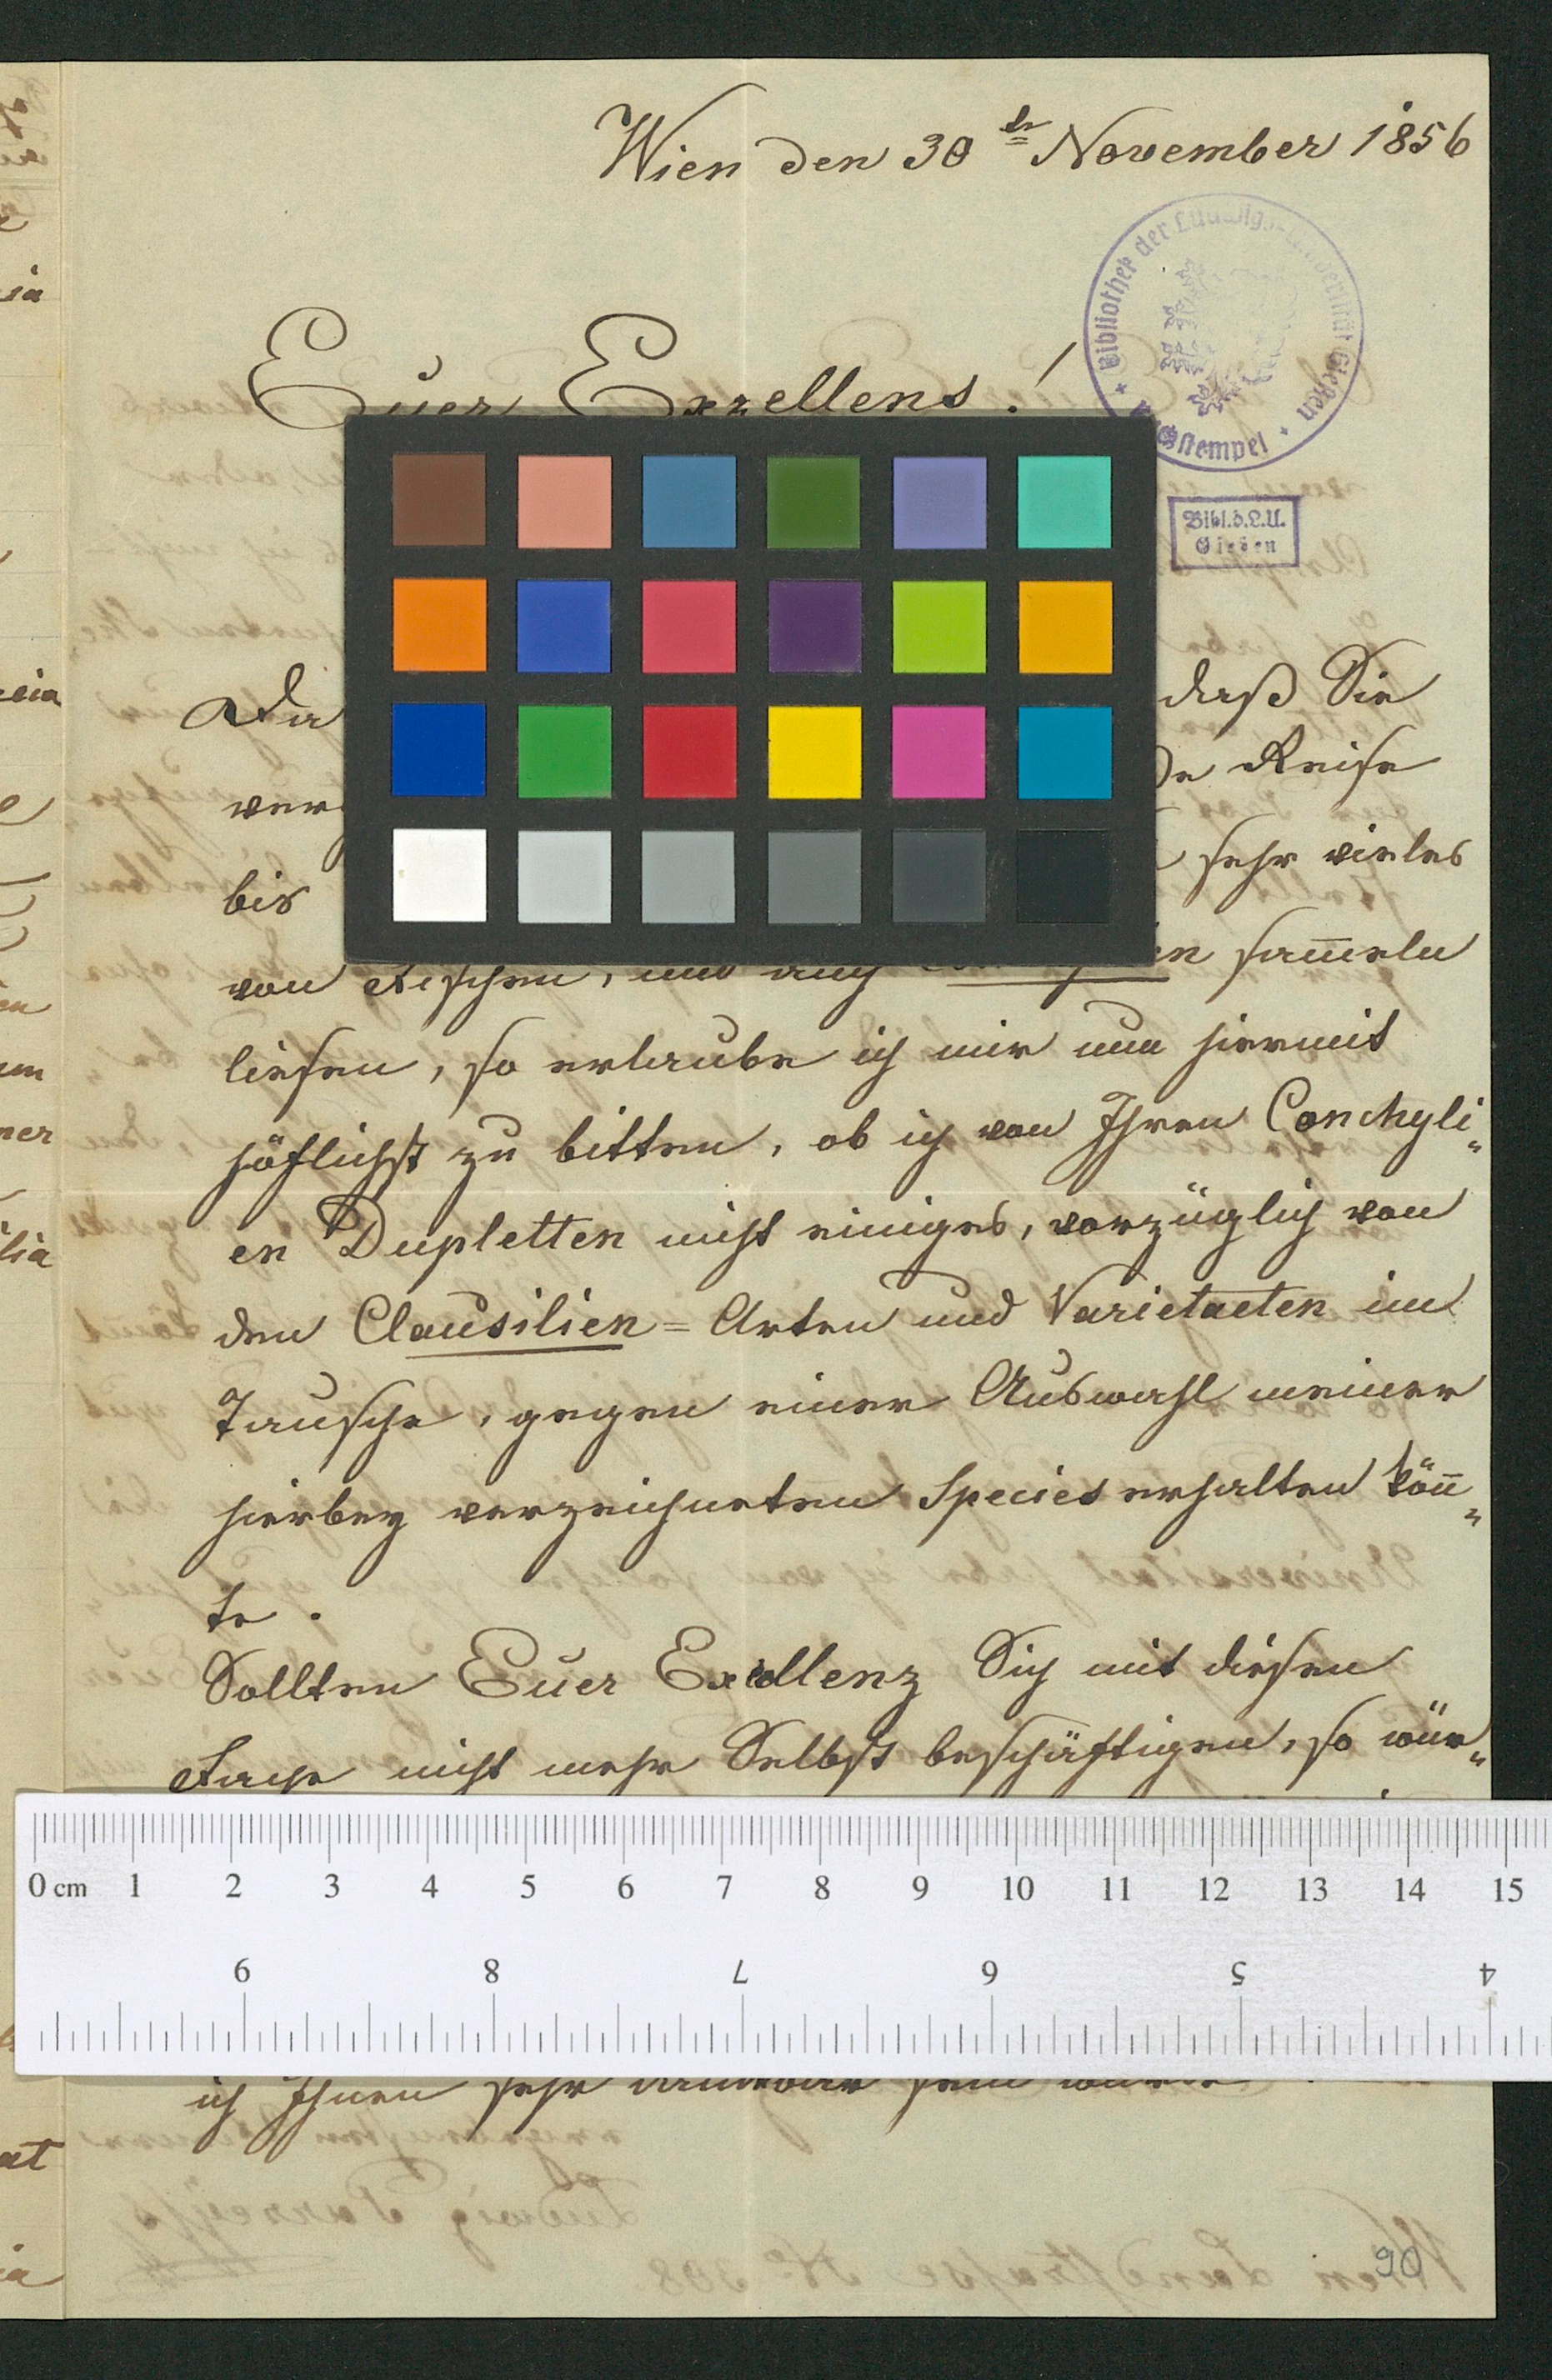 Wien den 30ten November 1856
Euer Exzellens!
Bibliothek der Ludwigs-Universität Gießen
Bibl.d.L.U.
Gießen
Da daß Sie
Reise
bis sehr vieles
von Fischen, und auch sam̅eln
ließen, so erlaube ich mir nun hiermit
höflichst zu bitten, ob ich von Ihren Conchyli„
en Dupletten nicht einiges, vorzüglich von
den Clausilien = Arten und Varietaeten im
Tausche, gegen einer Auswahl meiner
hierbey verzeichneten Species erhalten kön̅„
te.
Sollten Euer Excellenz Sich mit diesen
Fache nicht mehr Selbst beschäftigen, so wür„
0 cm 1 2 3 4 5 6 7 8 9 10 11 12 13 14 15
9 8 7 6 5 4
ich Ihnen sehr dankbar sein würde.
90